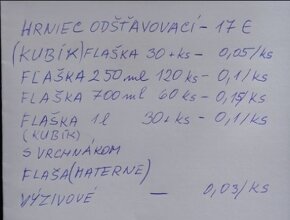 HRNIEC ODŠŤAVOVACÍ - 17 €
(KUBÍK) FLAŠKA 30+ks - 0,05/ks
FĽAŠKA 250 ml 120 ks - 0,1/ks
FĽAŠKA 700 ml 60 ks - 0,15/ks
FĽAŠKA 1l 30+ks - 0,1/ks
(KUBÍK)
S VRCHNÁKOM
FĽAŠA (MATERNE)
VÝZIVOVÉ - 0,03/ks